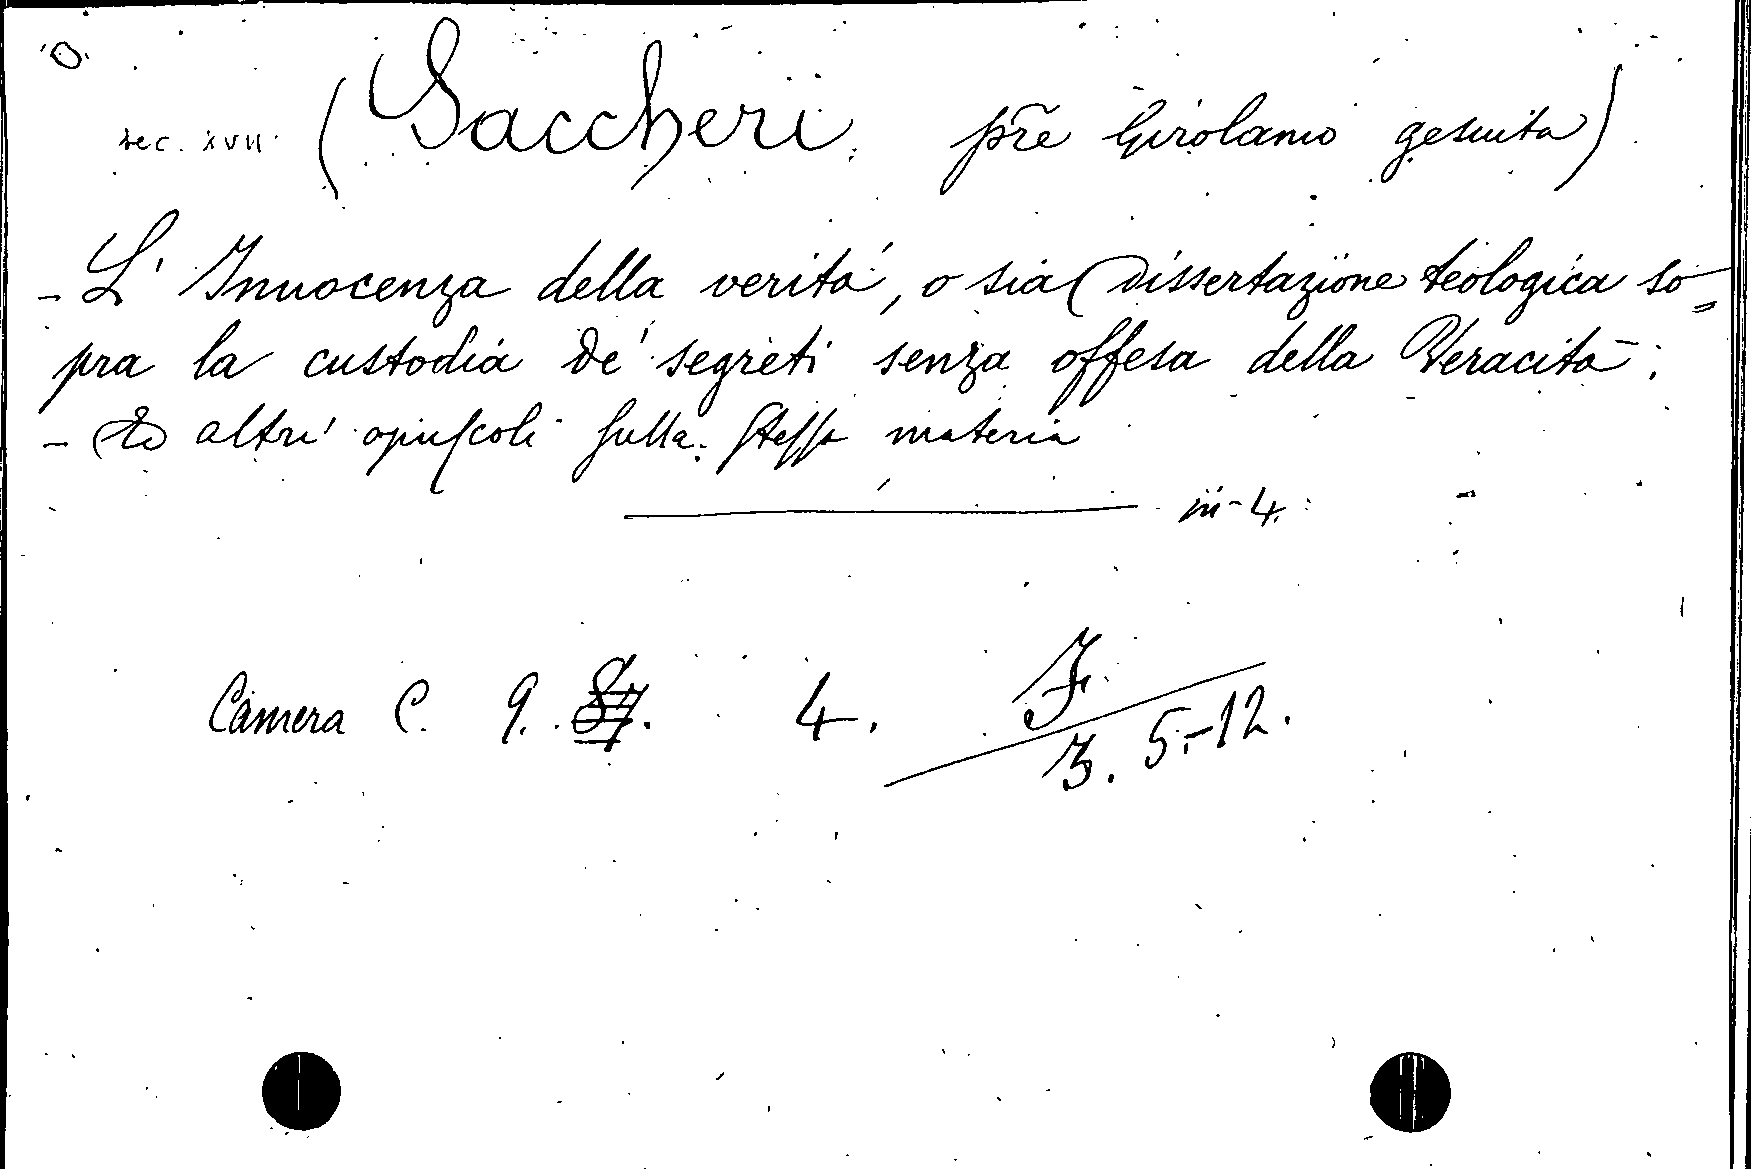 sec. XVII. (Saccheri, pr̃e Girolamo gesuita)
- L' Innocenza della verità, o sia Dissertazione teologica so=
pra la custodia de' segreti senza offesa della Veracità:
- Ed altri opuscoli sulla stessa materia
in-4.
Camera C. 9. 4. F. 3. 5.-12.